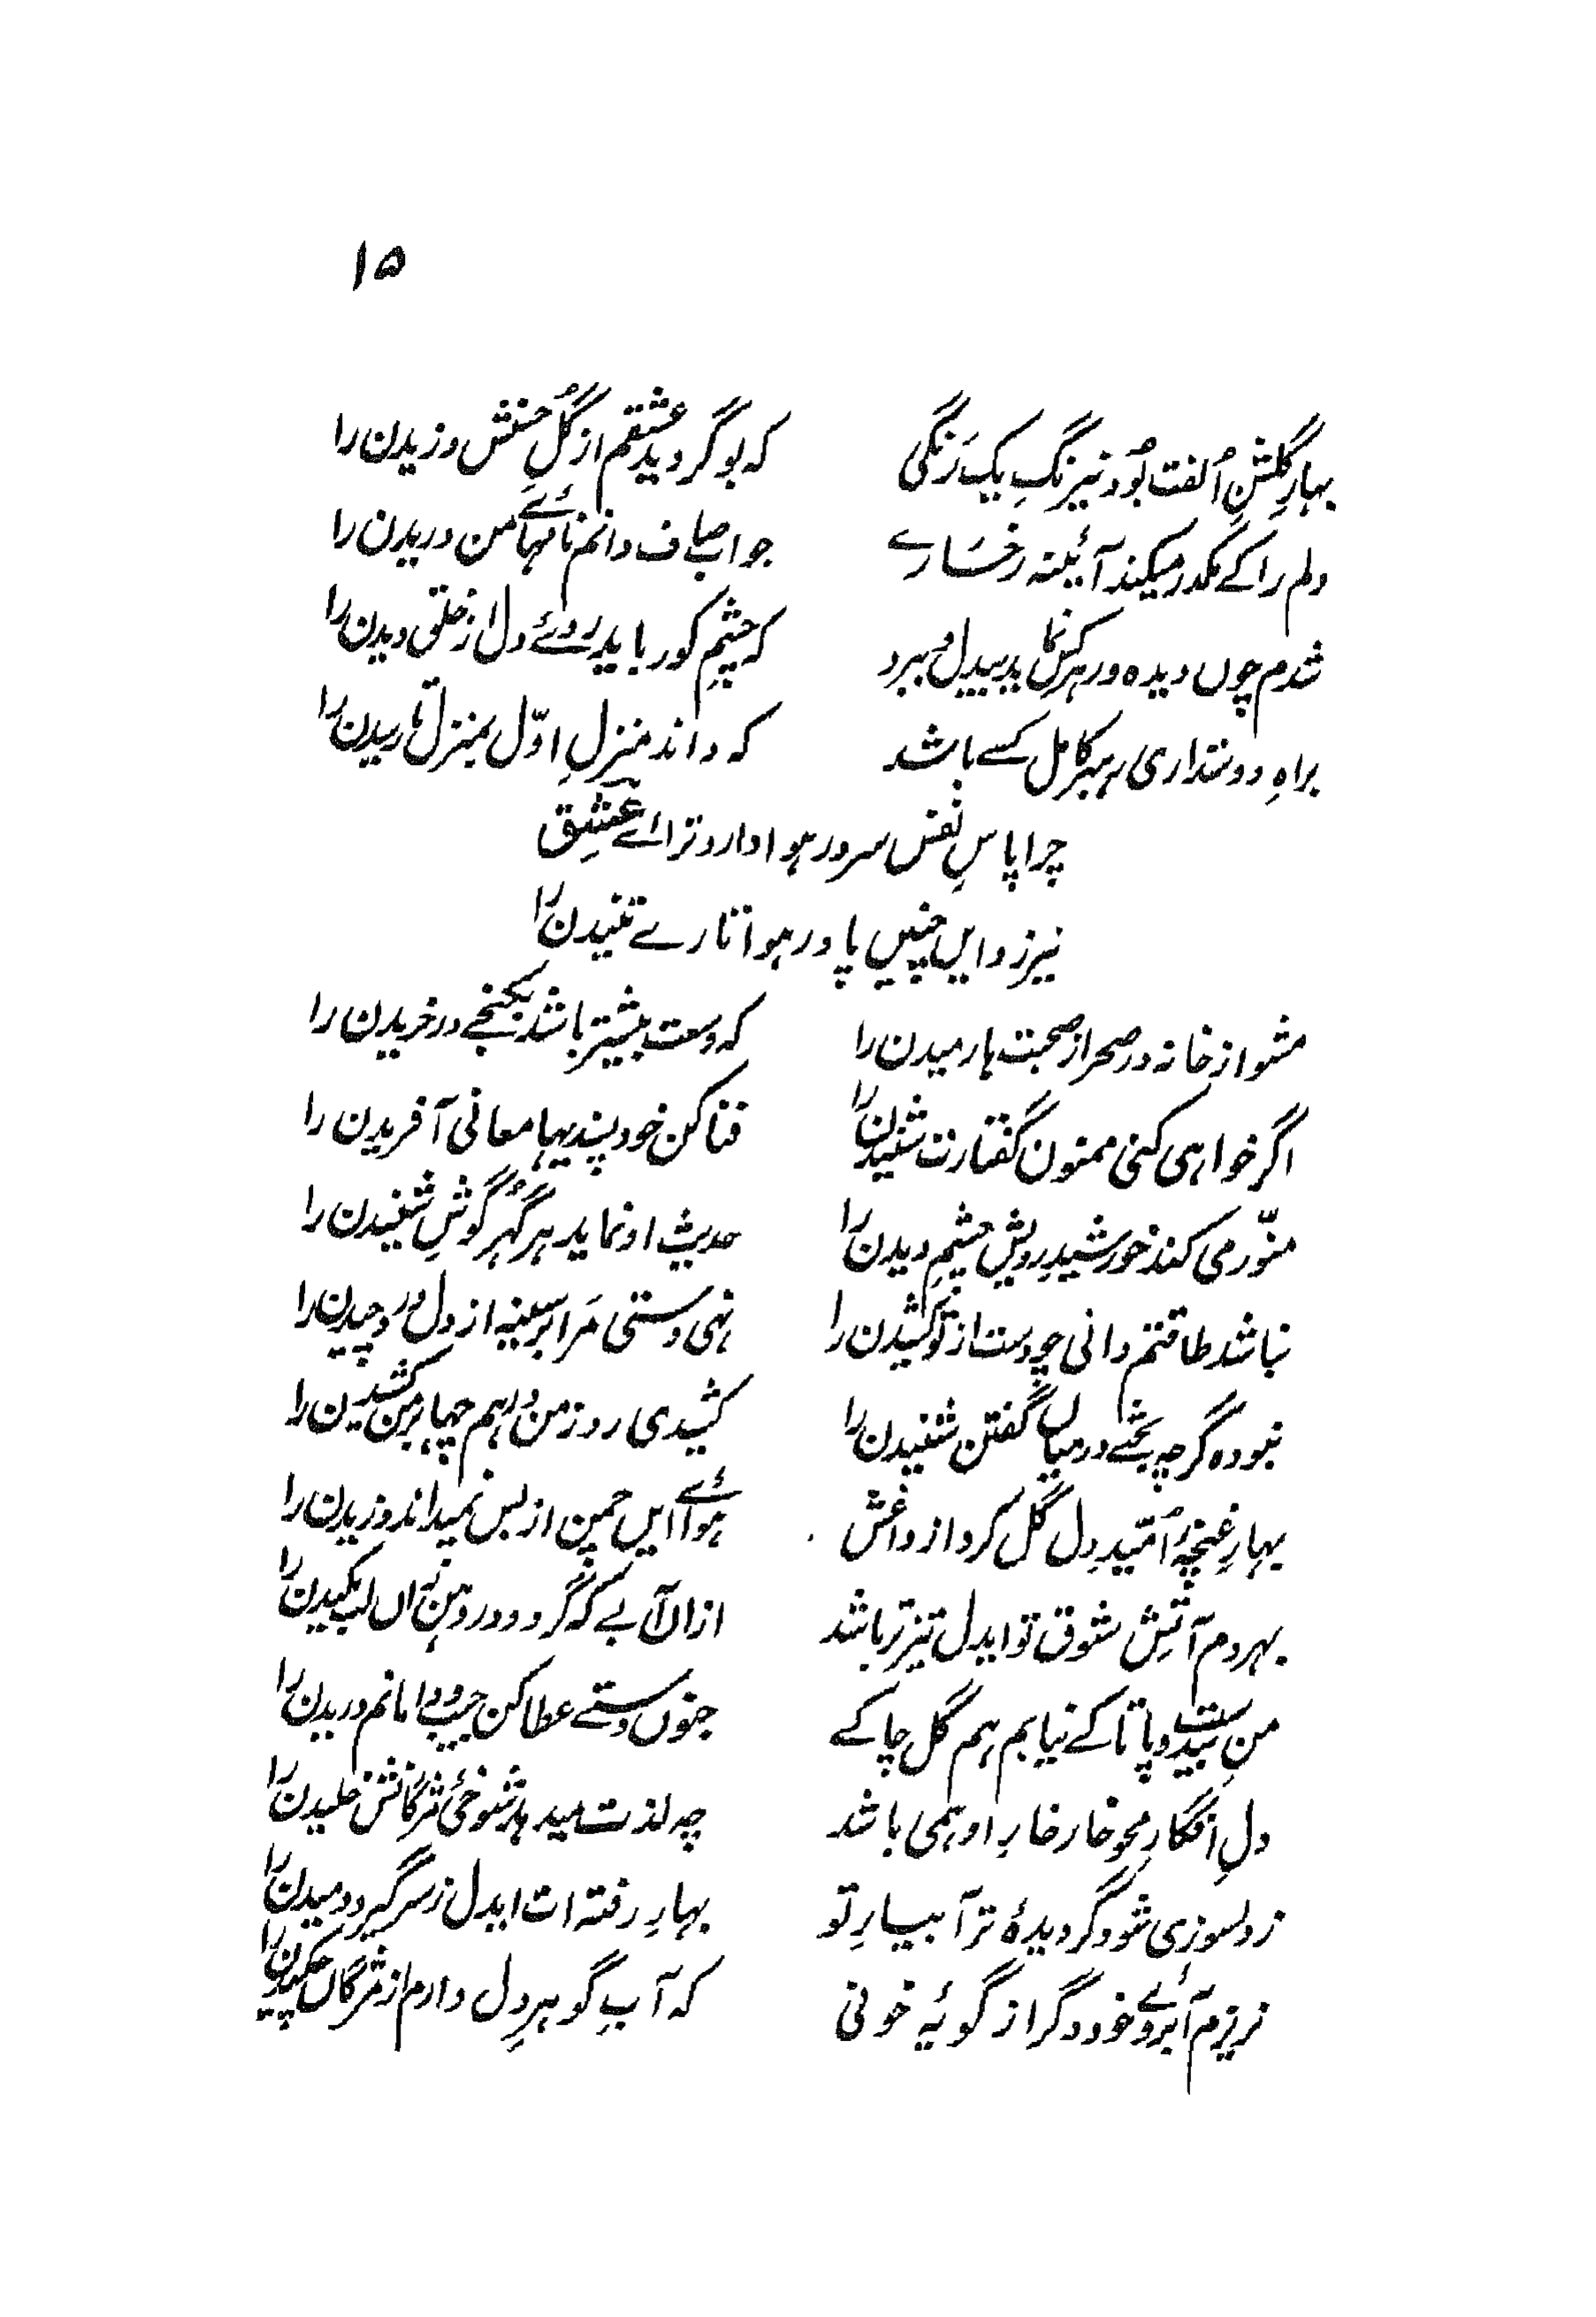 ۱۵
بہارِ گلشنِ اُلفت بُود نیرنگِ یک رَنگی کہ بو گردید عشقم از گُلِ حسنش وزیدن را
دلم را کے مکدر میکند آئینہ رخسَارے جواب صاف دانم نامہائے من دریدن را
شدم چوں دیدہ ور ہر کس نماید بیدل و بیرد کہ چشمِ کور باید روئے دل از خلق دیدن را
براہِ دوستداری رہبر کامل کسے باشد کہ داند منزلِ اوّل بمنزل تا رسیدن را
چرا پاسِ نفس سرور ہوا دارد ترا اے عشِق
نیرزد ایں چنیں پا در ہوا تارے تنیدن را
مشو از خانہ در صحرا ز صحبت ہا رمیدن را کہ وسعت بیشتر باشد بکنجے در خزیدن را
اگر خواہی کنی ممنون گفتارت شنیدن را فنا کن خود پسندیہا معانی آفریدن را
منوّر می کند خورشیدِ رویش چشمِ دیدن را حدیث او نماید ہر گہُر گوشِ شنیدن را
نباشد طاقتم دانی چو دست از تو کشیدن را نہی دستی مَرا بر سینہ از دل درد چیدن را
نبودہ گرچہ بحثے درمیاں گفتن شنیدن را کشیدی رو ز من در ہم چہا بر من کشیدن را
بہارِ غنچہُ اُمّیدِ دِل گل کرد از داغش ہوائے ایں چمن از بس نمیداند وزیدن را
بہر دم آتشِ شوق تو ایدل تیز تر باشد ازاں آبے کہ گردد در دہن زاں لب مکیدن را
منِ بیدست و پا تا کے نیابم ہم گل چاکے جنوں دستے عطا کن جیب و دامانم دریدن را
دلِ افگارِ محو خار خارِ او ہمی باشد چہ لذت میدہد شوخئ مژگانش خلیدن را
ز دلسوزی شود گر دیدۂ تر آبیارِ تو بہارِ رفتہ ات ایدل ز سر گیرد دمیدن را
نریزم آبروئے خود دگر از گویۂ خونی کہ آبِ گوہرِ دِل دارم از مژگاں چکیدن را